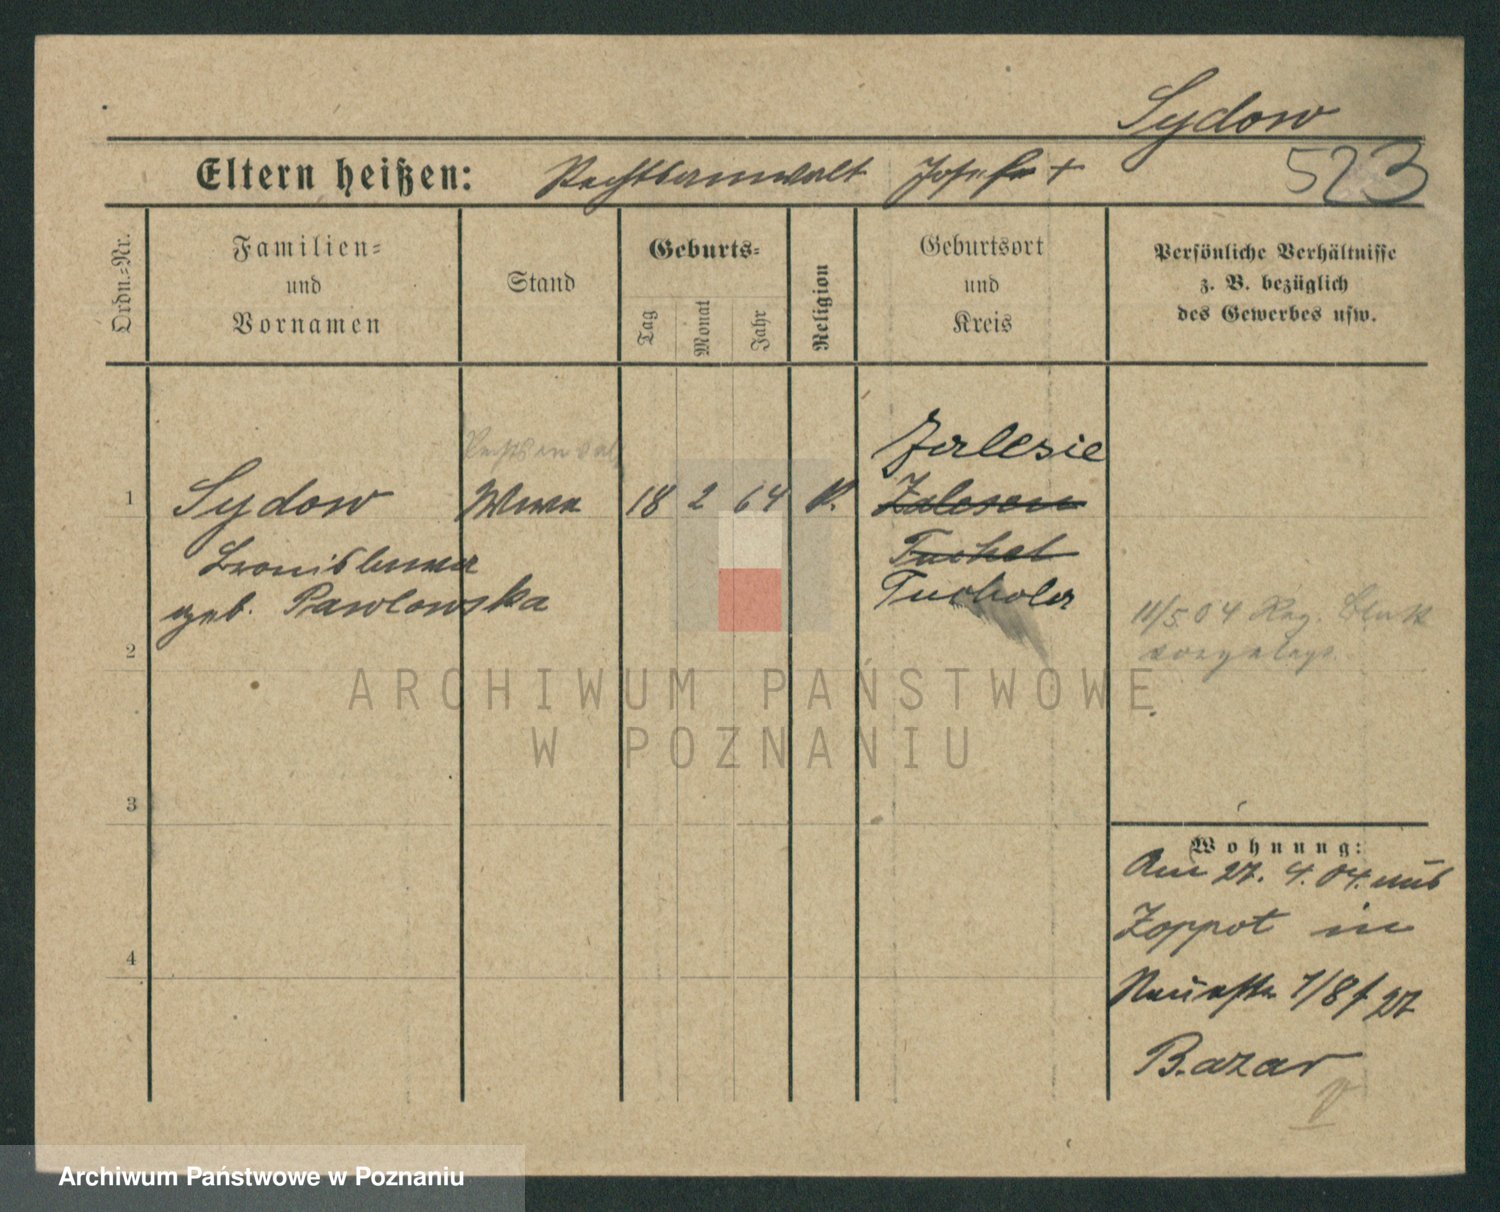 Sydow
523
Eltern heißen: Rechtsanwalt Josefa +
Ordn.=Nr.
Familien=
und
Vornamen
Stand
Geburts=
Tag
Monat
Jahr
Religion
Geburtsort
und
Kreis
Persönliche Verhältnisse
z. B. bezüglich
des Gewerbes usw.
Zalesie
1 Sydow Wwe 18 2 64 k. Zalesen
Bronislawa Tuchel
geb. Pawlowska Tucholer
11/5 04 Reg.
vorgelegt.
2
3
4
Wohnung:
Am 27. 4. 04 aus
Zoppot in
Neuestr 7/8 f 27
Bazar
ARCHIWUM PAŃSTWOWE
W POZNANIU
Archiwum Państwowe w Poznaniu